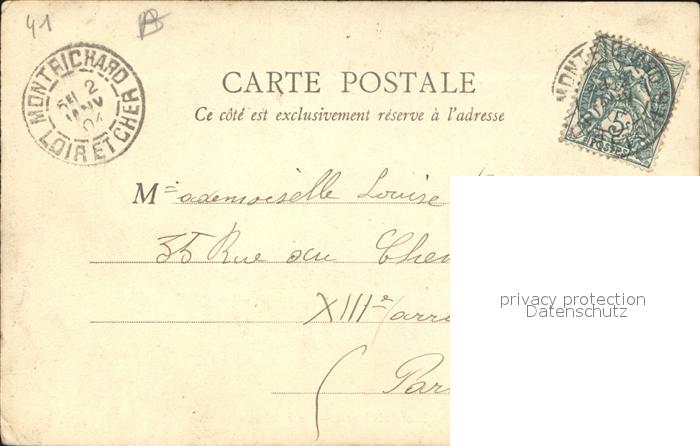 41
MONTRICHARD
2
JANV
04
LOIR ET CHER
CARTE POSTALE
Ce côté est exclusivement réservé à l'adresse
MONTRICHARD
5
POSTES
Mademoiselle Louise
35 Rue du Che
privacy protection
Datenschutz
XIIIe arr
( Par